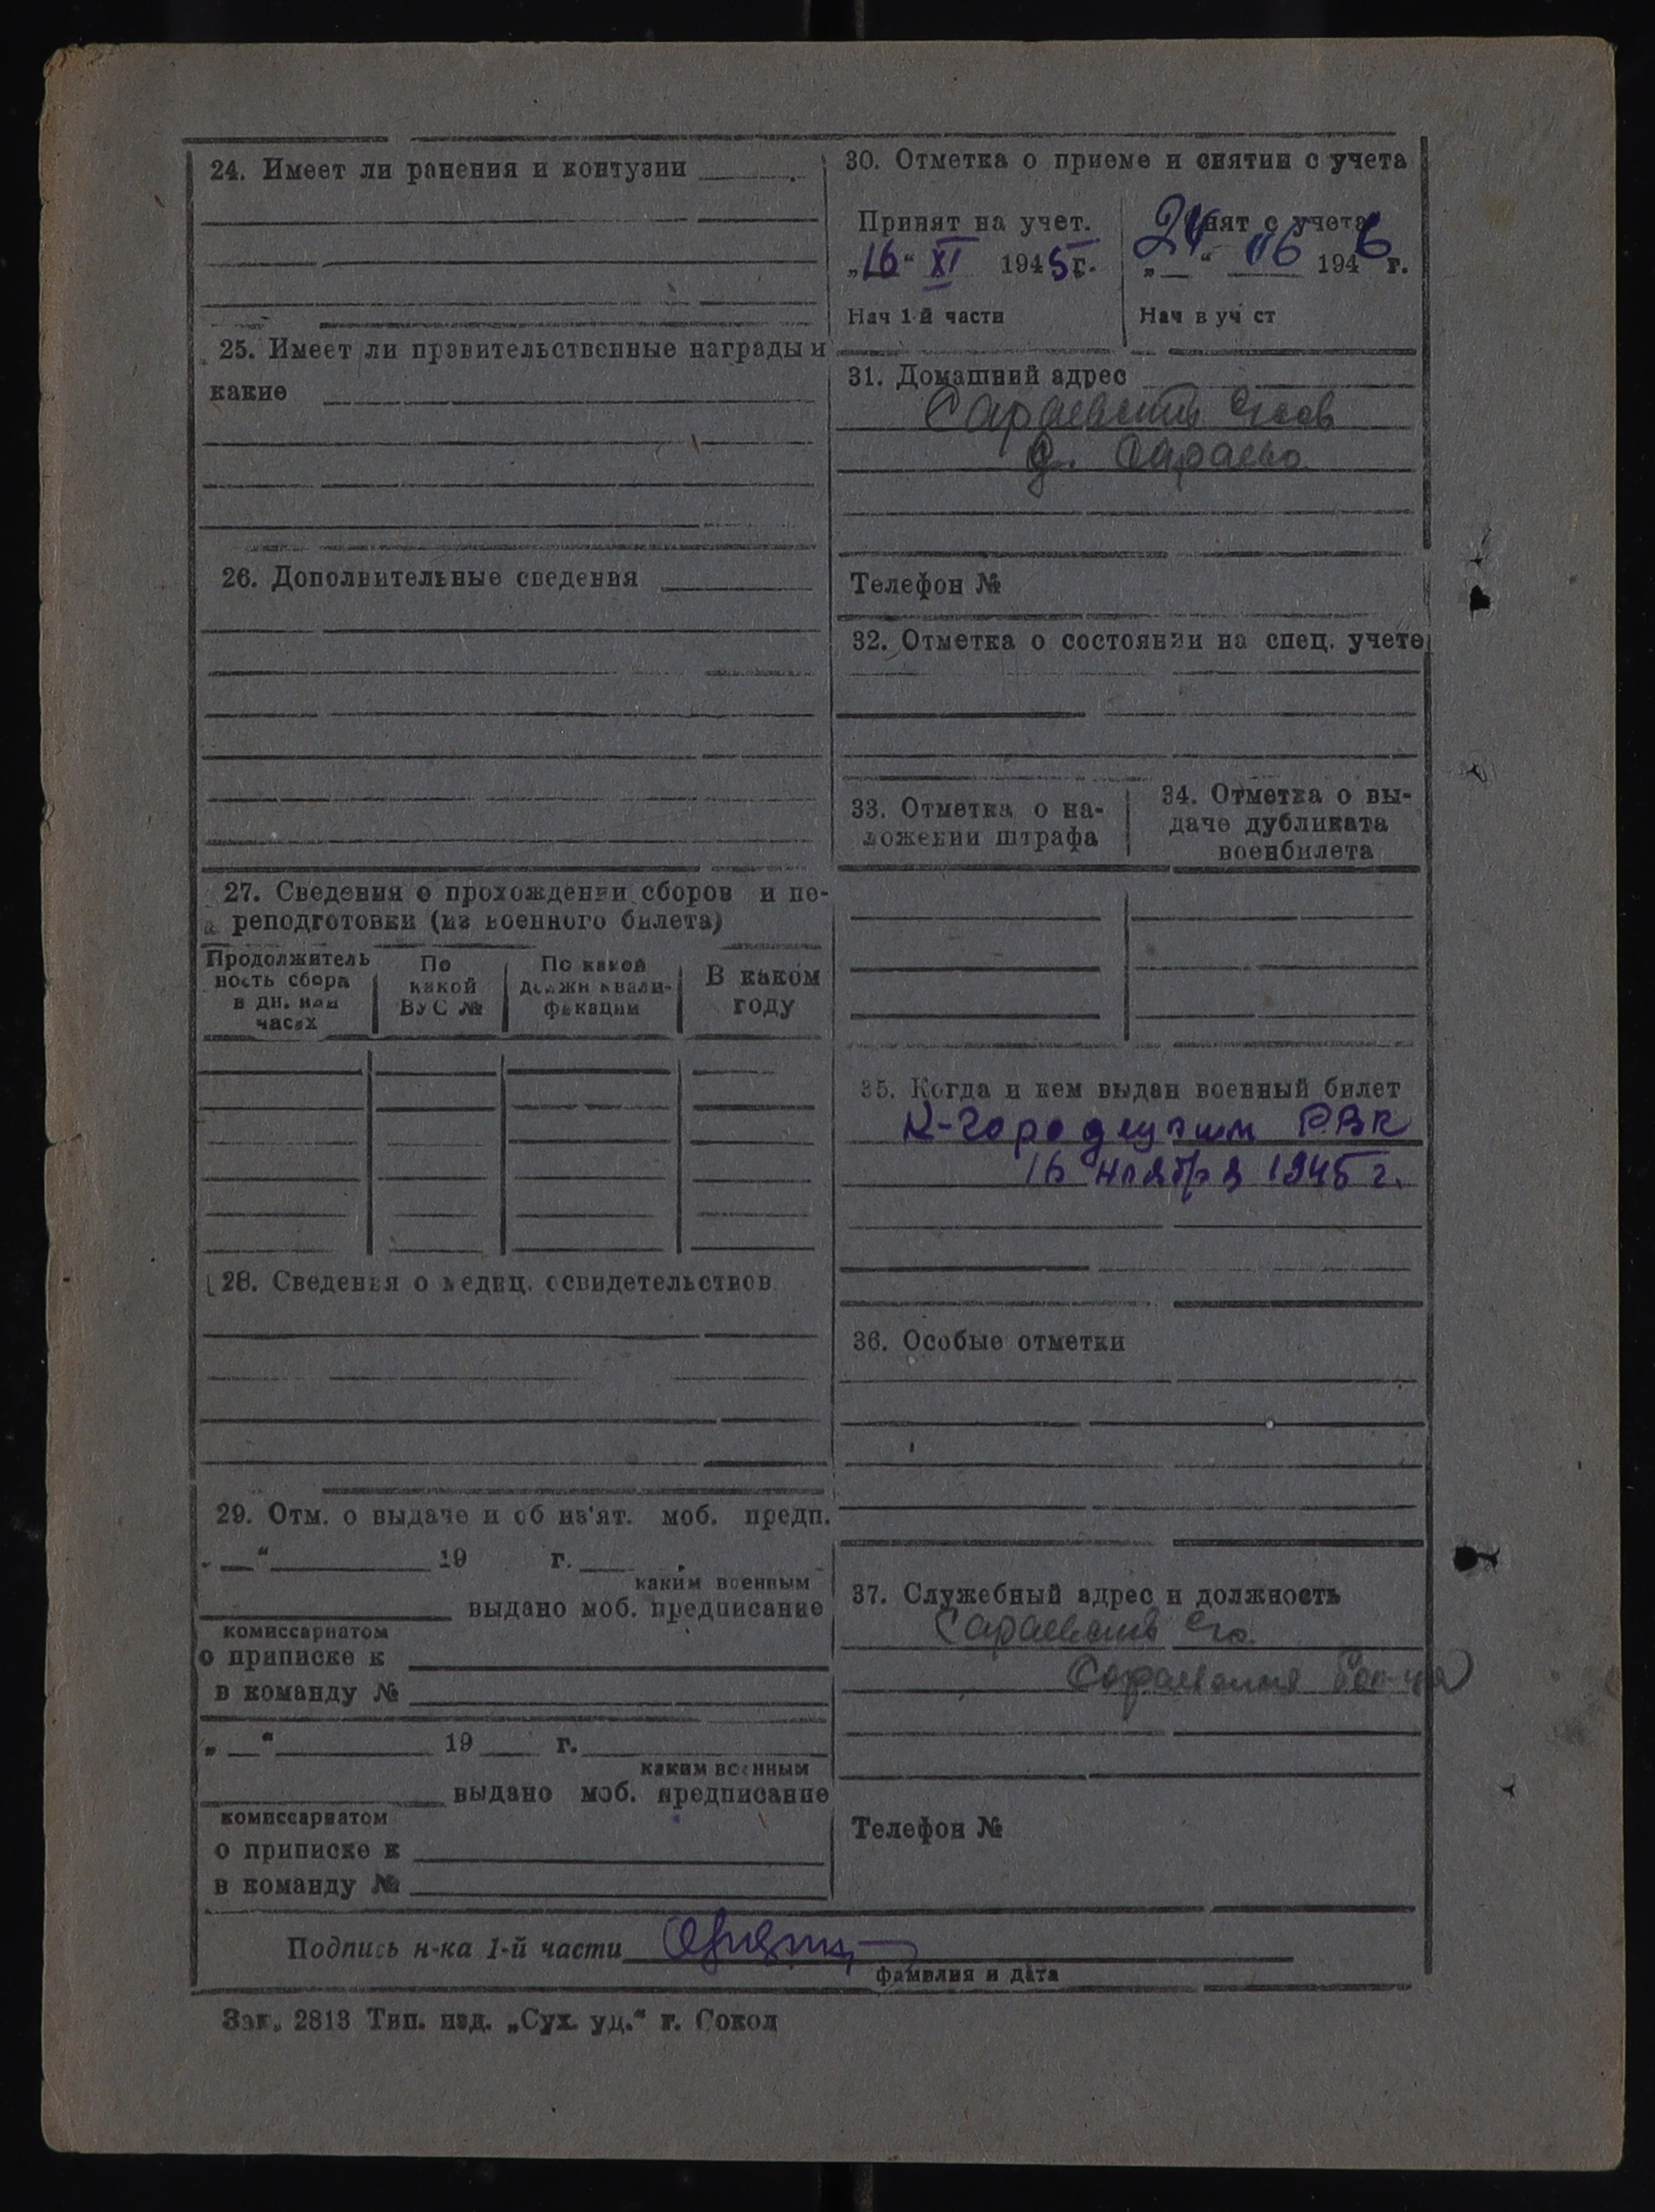 24. Имеет ли ранения и контузии
25. Имеет ли правительственные награды и
какие
26. Дополнительные сведения
27. Сведения о прохождении сборов и пе-
реподготовки (из военного билета)
Продолжитель
ность сбора
в дн. или
часах
По
какой
ВУС №
По какой
должн квали-
фикации
В каком
году
28. Сведения о медиц. освидетельствов
29. Отм. о выдаче и об из'ят. моб. предп.
„ “ 19 г.
каким военным
выдано моб. предписание
комиссариатом
о приписке к
в команду №
„ “ 19 г.
каким военным
выдано моб. предписание
комиссариатом
о приписке к
в команду №
30. Отметка о приеме и снятии с учета
Принят на учет.
„16“ XI 1945 г.
Нач 1-й части
Снят с учета
24 06 1946 г.
Нач в уч ст
31. Домашний адрес
Сараевский
д. Сараево
Телефон №
32. Отметка о состоянии на спец. учете
33. Отметка о на-
ложении штрафа
34. Отметка о вы-
даче дубликата
военбилета
35. Когда и кем выдан военный билет
К-Городецким РВК
16 ноября 1945 г.
36. Особые отметки
37. Служебный адрес и должность
Сараевский
Телефон №
Подпись н-ка 1-й части
фамилия и дата
Зак. 2813 Тип. изд. „Сух. уд.“ г. Сокол